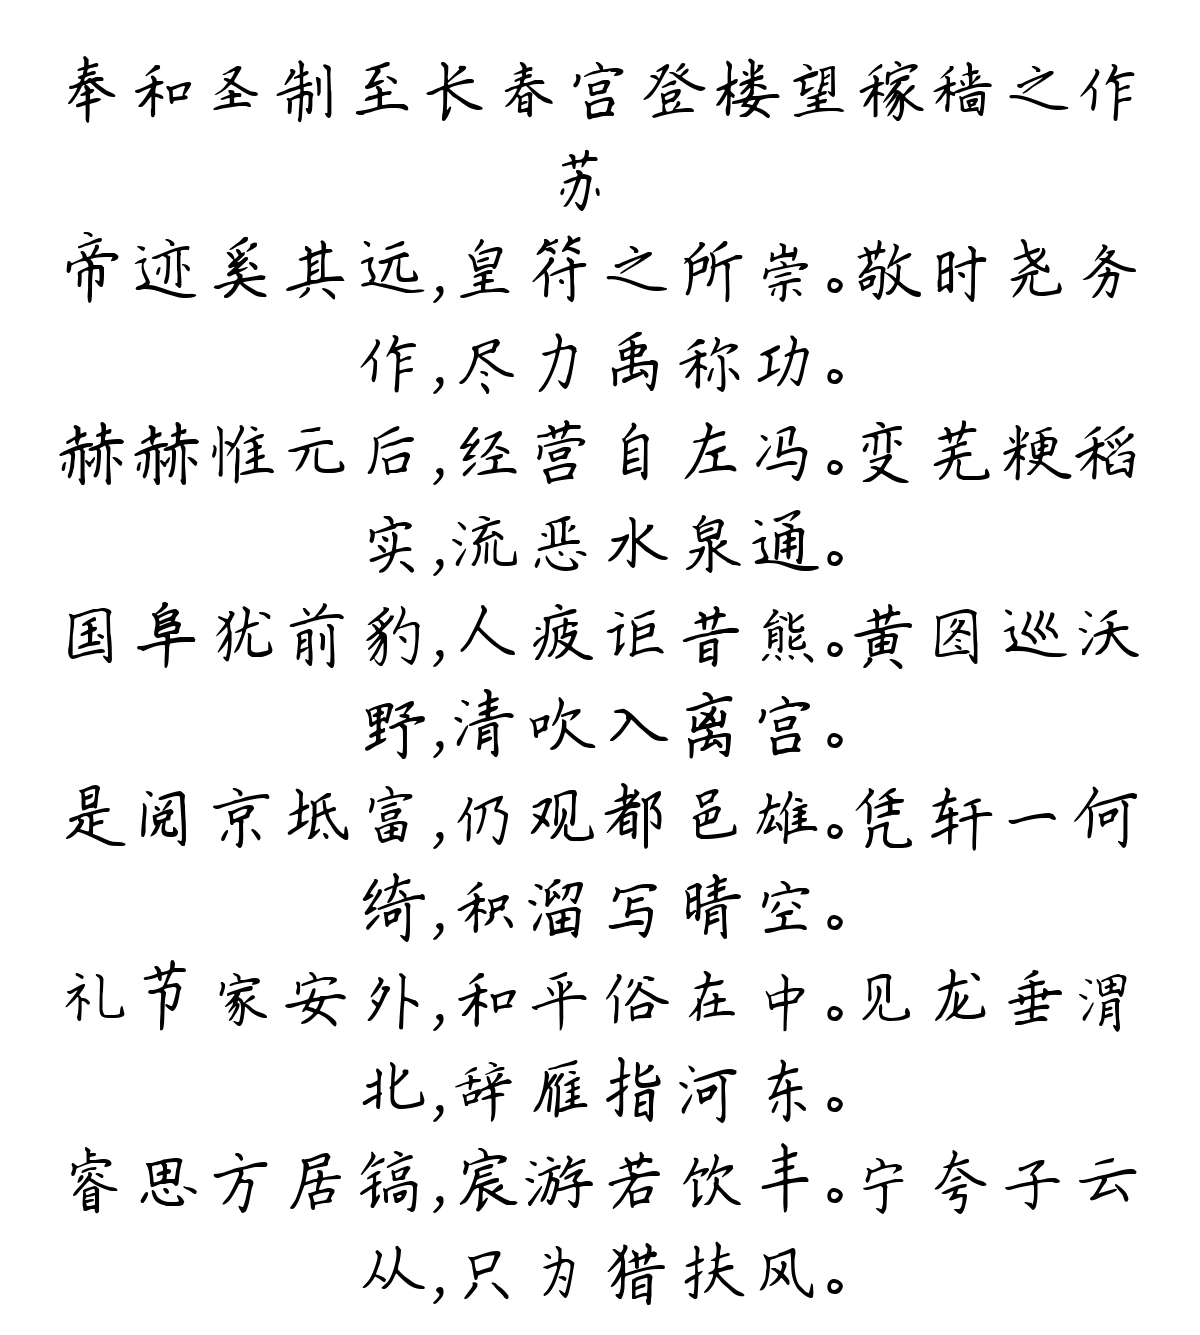 奉和圣制至长春宫登楼望稼穑之作
苏
帝迹奚其远,皇符之所崇。敬时尧务
作,尽力禹称功。
赫赫惟元后,经营自左冯。变芜粳稻
实,流恶水泉通。
国阜犹前豹,人疲讵昔熊。黄图巡沃
野,清吹入离宫。
是阅京坻富,仍观都邑雄。凭轩一何
绮,积溜写晴空。
礼节家安外,和平俗在中。见龙垂渭
北,辞雁指河东。
睿思方居镐,宸游若饮丰。宁夸子云
从,只为猎扶风。